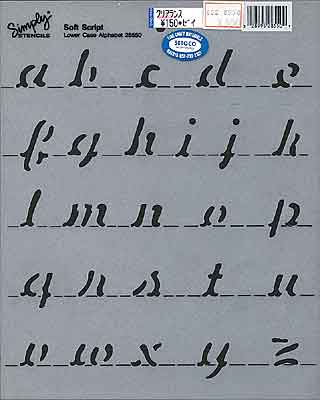 Simply
STENCILS
Soft Script
Lower Case Alphabet 28550
クリアランス
¥150
a b c d e
f g h i j k
l m n o p
q r s t u
v w x y z